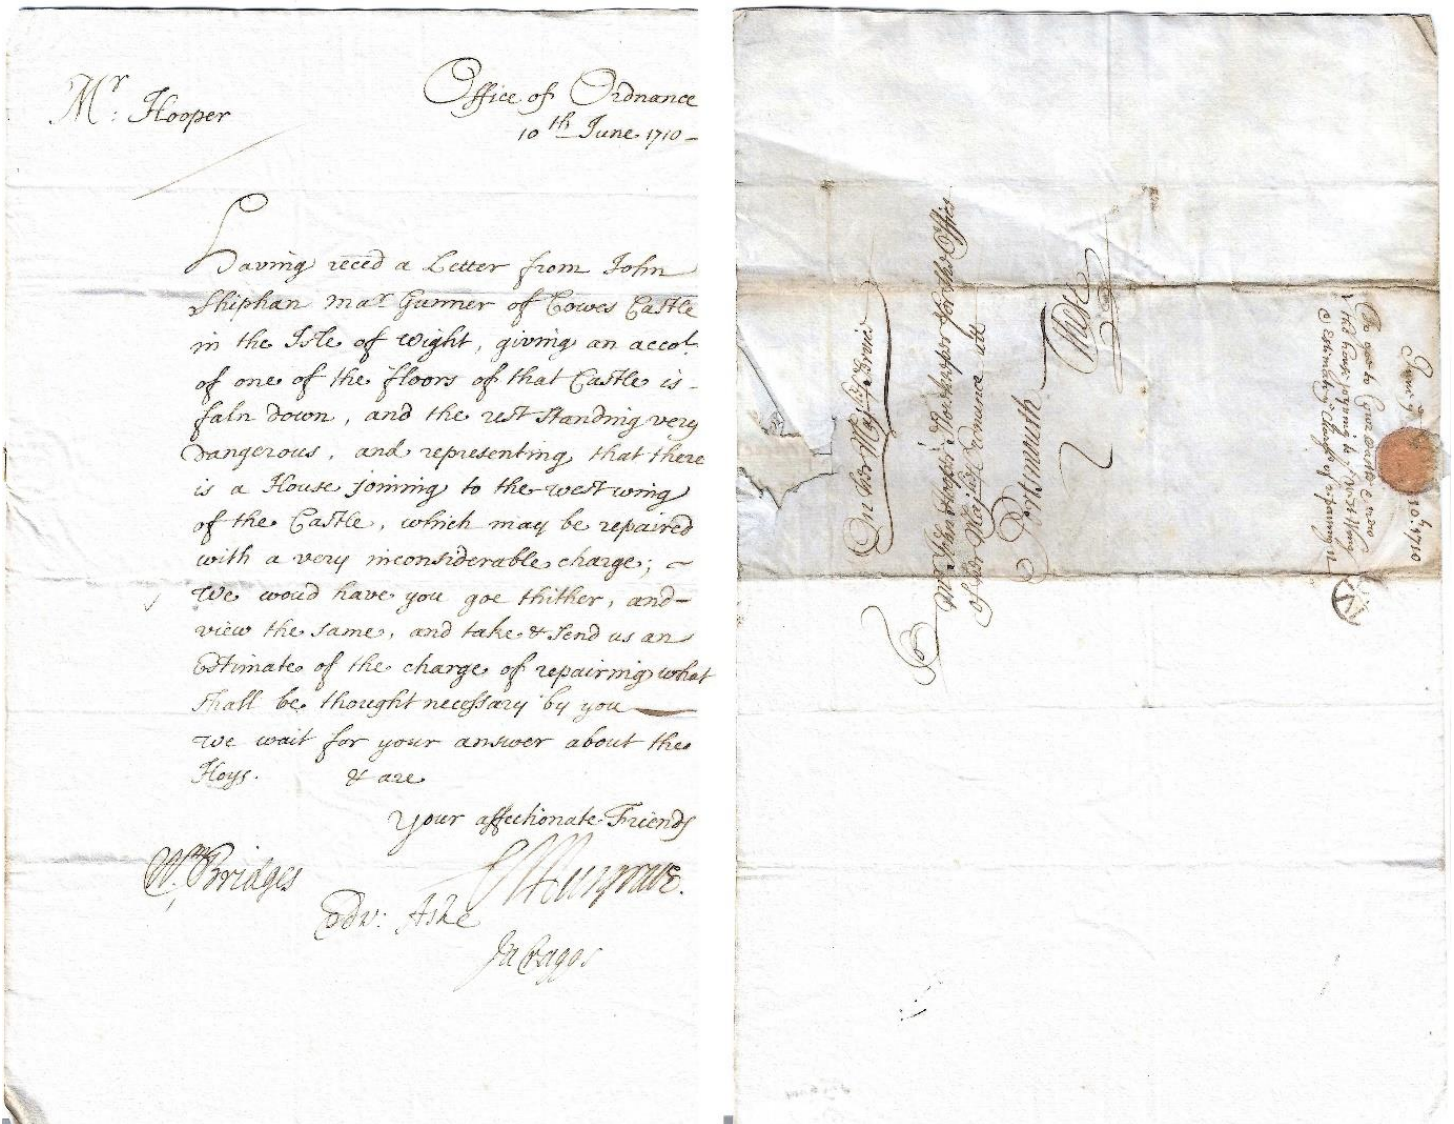 Mr: Hooper
Office of Ordnance
10th June 1710
Having reced a Letter from John
Shiphan mar Gunner of Cowes Castle
in the Isle of Wight, giving an accot.
of one of the floors of that Castle is
faln down, and the rest standing very
dangerous, and representing that there
is a House joining to the west wing
of the Castle, which may be repaired
with a very inconsiderable charge;
We woud have you goe thither, and
view the same, and take & send us an
Estimate of the charge of repairing what
shall be thought necessary by you
We wait for your answer about the
Hoys. & are
Your affectionate Friends
Wm Bridges
Musgrave.
Edw: Ashe
Ja Craggs
On her Majtys Service
To
Mr John Hooper Storekeeper for the Office
of her Majtys Ordnance att
Portsmouth
These
June
10th 1710
To go to Cows Castle & view
the house joyning to ye West Wing
& Estimate ye Charge of repairing it